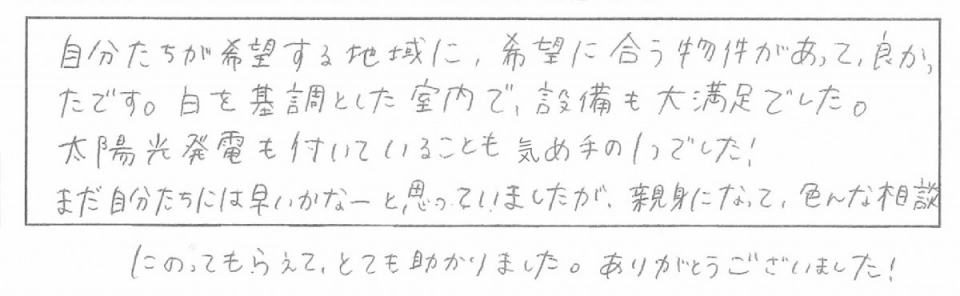 自分たちが希望する地域に、希望に合う物件があって、良かっ
たです。白を基調とした室内で、設備も大満足でした。
太陽光発電も付いていることも気め手の1つでした!
まだ自分たちには早いかなーと思っていましたが、親身になって、色んな相談
にのってもらえて、とても助かりました。ありがとうございました!